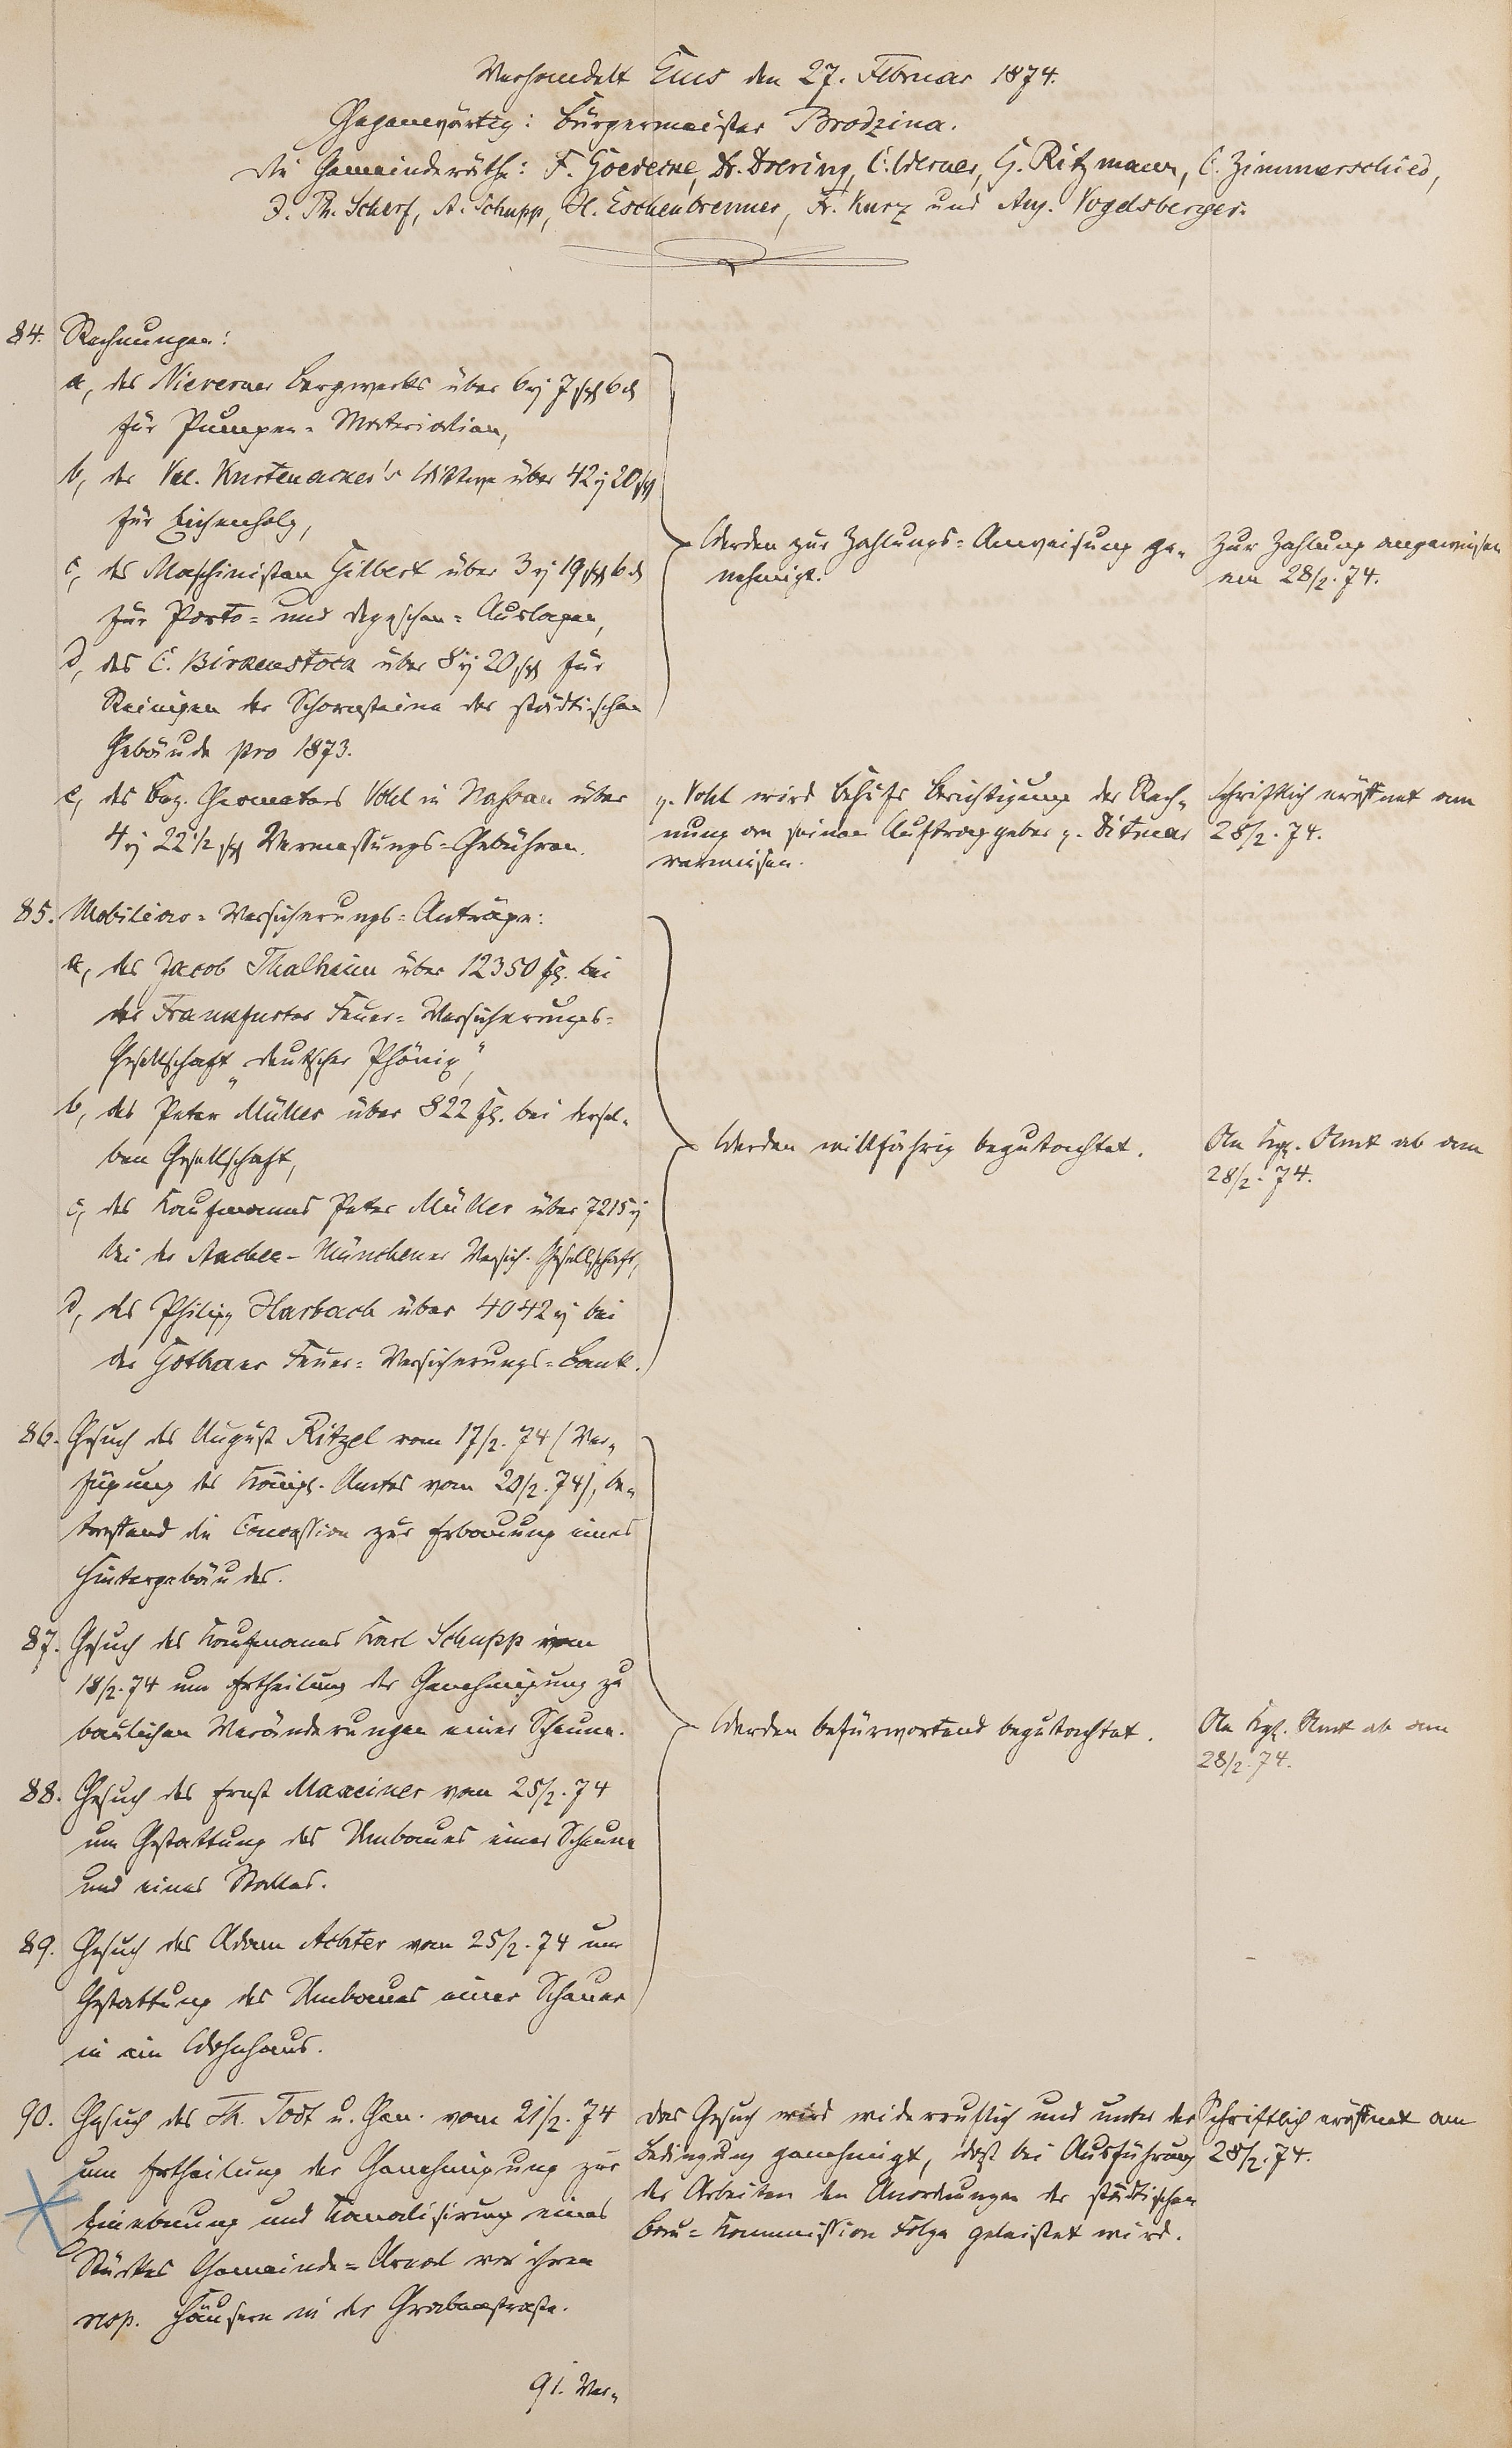 Verhandelt Ems den 27. Februar 1874.
Gegenwärtig: Bürgermeister Brodzina.
die Gemeinderäthe: F. Goedecke, Dr. Doering, C. Werner, G. Ritzmann, C. Zimmerschied,
J. Ph. Scherf, A. Schupp, H. Eschenbrenner, Fr. Kurz und Aug. Vogelsberger.
84. Rechnungen:
a, des Nieverner Bergwerks über 6 rh 7 sgr 6 d
für Pumpen-Materialien,
b, der Val. Kustenacker's Wittwe über 42 rh 20 sgr
für Eichenholz,
c, des Maschinisten Gilbert über 3 rh 19 sgr 6 d
für Porto- und Depeschen-Auslagen,
d, des C. Birkenstock über 8 rh 20 sgr für
Reinigen der Schornsteine der städtischen
Gebäude pro 1873.
Werden zur Zahlungs-Anweisung ge-
nehmigt.
Zur Zahlung angewiesen
am 28/2. 74.
e, des Bez. Geometers Vohl in Nassau über
4 rh 22 1/2 sgr Vermessungs-Gebühren.
p. Vohl wird behufs Berichtigung der Rech-
nung an seinen Auftraggeber p. Ditmar
verwiesen.
Schriftlich eröffnet am
28/2. 74.
85. Mobiliar-Versicherungs-Anträge:
a, des Jacob Thalheim über 12350 fl. bei
der Frankfurter Feuer-Versicherungs-
Gesellschaft „deutscher Phönix",
b, des Peter Müller über 822 fl. bei dersel-
ben Gesellschaft,
c, des Kaufmanns Peter Müller über 7215 rh
bei der Aachen-Münchener Versich. Gesellschaft,
d, des Philipp Harbach über 4042 rh bei
der Gothaer Feuer-Versicherungs-Bank.
Werden willfährig begutachtet.
An Kgl. Amt ab am
28/2. 74.
86. Gesuch des August Ritzel vom 17/2. 74 (Ver-
fügung des Königl. Amtes vom 20/2. 74), be-
treffend die Concession zur Erbauung eines
Hintergebäudes.
87. Gesuch des Kaufmanns Karl Schupp vom
18/2. 74 um Ertheilung der Genehmigung zu
baulichen Veränderungen einer Scheune.
88. Gesuch des Ernst Maxeiner vom 25/2. 74
um Gestattung des Umbaues einer Scheune
und eines Stalles.
89. Gesuch des Adam Achter vom 25/2. 74 um
Gestattung des Umbaues einer Scheuer
in ein Wohnhaus.
Werden befürwortend begutachtet.
An Kgl. Amt ab am
28/2. 74.
90. Gesuch des Th. Todt u. Gen. vom 21/2. 74
um Ertheilung der Genehmigung zur
Einebnung und Kanalisirung eines
Stückes Gemeinde-Areal vor ihren
resp. Häusern in der Grabenstraße.
Das Gesuch wird widerruflich und unter der
Bedingung genehmigt, daß bei Ausführung
der Arbeiten den Anordnungen der städtischen
Bau-Kommission Folge geleistet wird.
Schriftlich eröffnet am
28/2. 74.
91. Ver-